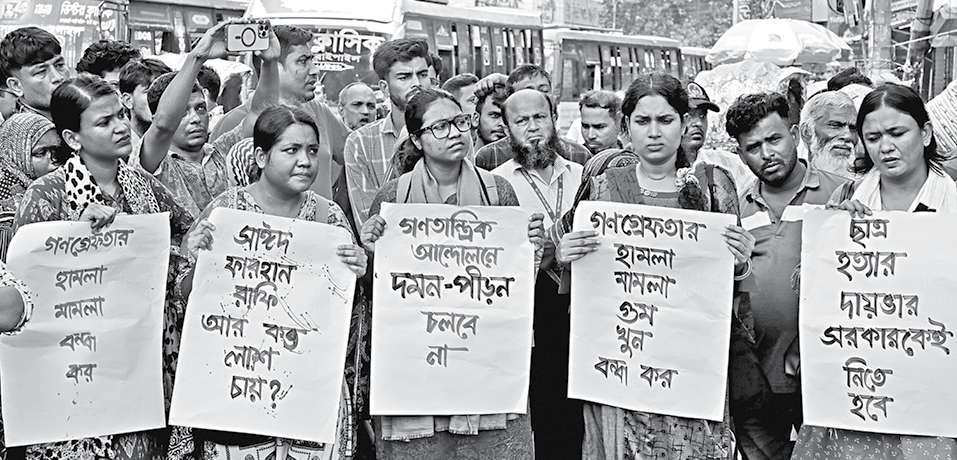 ক্লাসিক
গণগ্রেফতার
হামলা
মামলা
বন্ধ
কর
সাঈদ
ফারহান
রাফি
আর কত
লাশ
চায়?
গণতান্ত্রিক
আন্দোলনে
দমন-পীড়ন
চলবে
না
গণগ্রেফতার
হামলা
মামলা
গুম
খুন
বন্ধ কর
ছাত্র
হত্যার
দায়ভার
সরকারকেই
নিতে
হবে